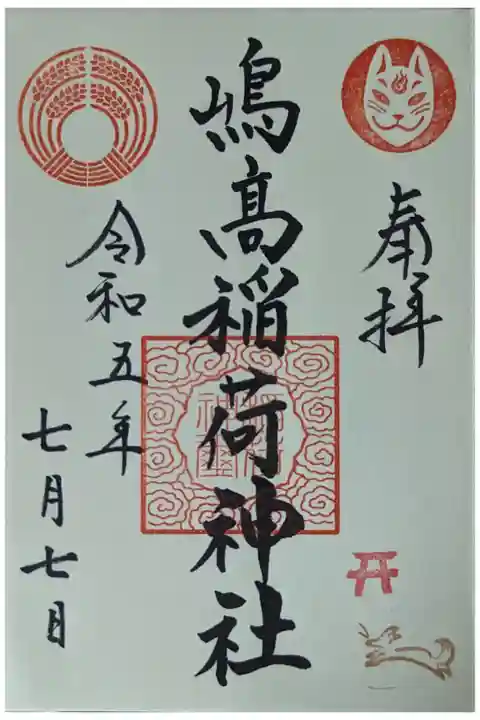 奉拝
嶋髙稲荷神社
令和五年
七月七日